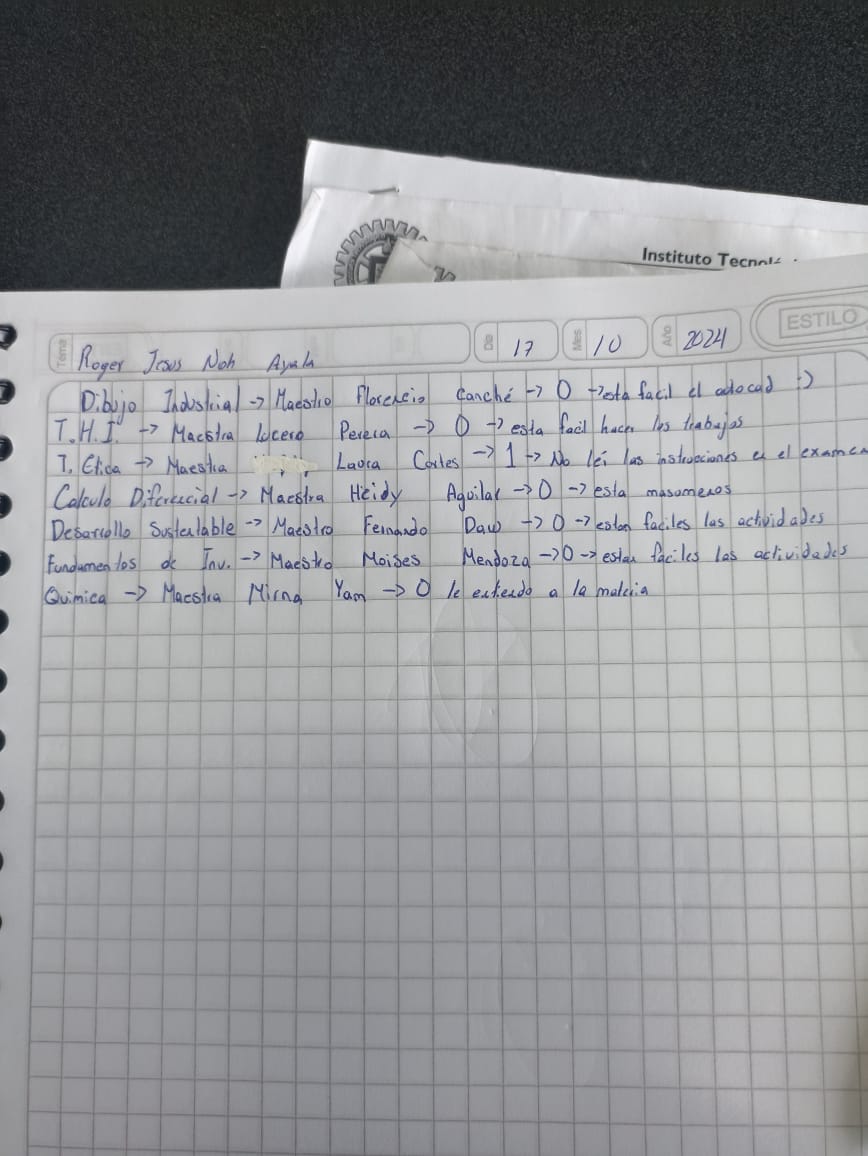 Instituto Tecnol
ESTILO
Tema Roger Jesus Noh Ayala Día 17 Mes 10 Año 2024
Dibujo Industrial -> Maestro Florencio Canché -> 0 -> esta facil el autocad :)
T.H.I. -> Maestra Lucero Pereca -> 0 -> esta facil hacer los trabajos
T. Etica -> Maestra Laura Cortes -> 1 -> No leí las instrucciones en el examen
Calculo Diferencial -> Maestra Heidy Aguilar -> 0 -> esta masomenos
Desarrollo Sustentable -> Maestro Fernando Daw -> 0 -> estan faciles las actividades
Fundamentos de Inv. -> Maestro Moises Mendoza -> 0 -> estan fáciles las actividades
Quimica -> Maestra Mirna Yam -> 0 le entiendo a la materia